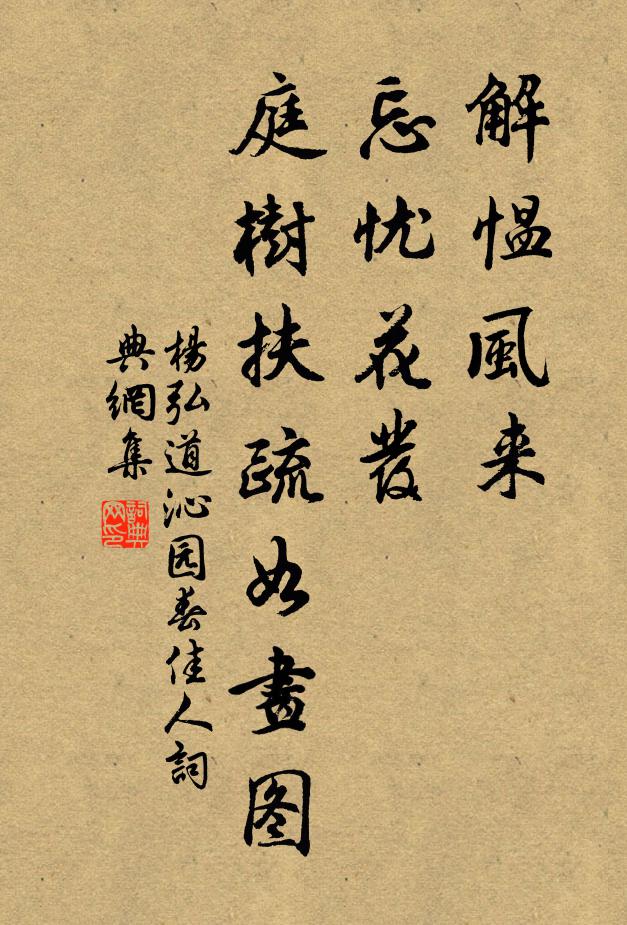 解愠風来
忘忧花發
庭樹扶疏如畫图
楊弘道沁园春佳人詞
典網集
詞典
网印